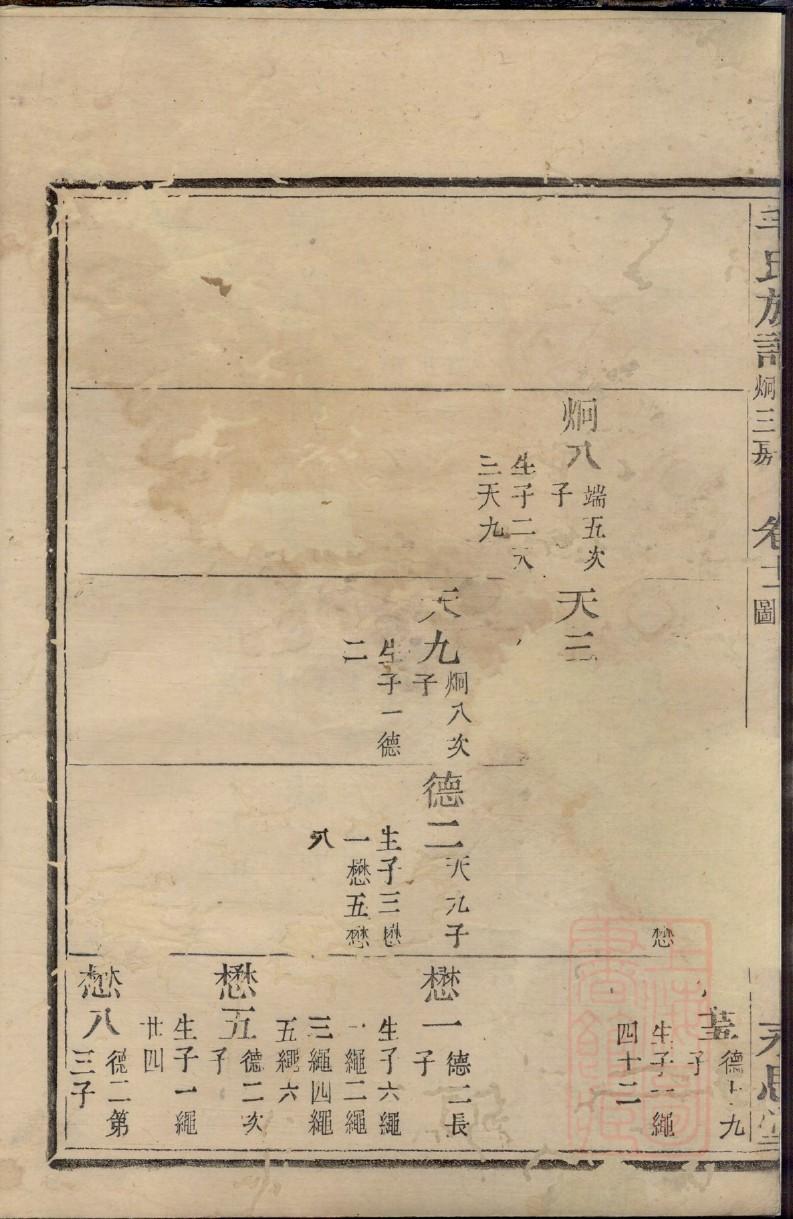 氏族譜 炯三房 卷 圖
懋
德 九
子
生子一繩
四十二
炯八
端五次
子
生子二天
三天九
天三
天九
炯八次
子
生子一德
二
德二
天九子
生子三懋
一懋五懋
八
懋一
德二長
子
生子六繩
一繩二繩
三繩四繩
五繩六
懋五
德二次
子
生子一繩
廿四
懋八
德二第
三子